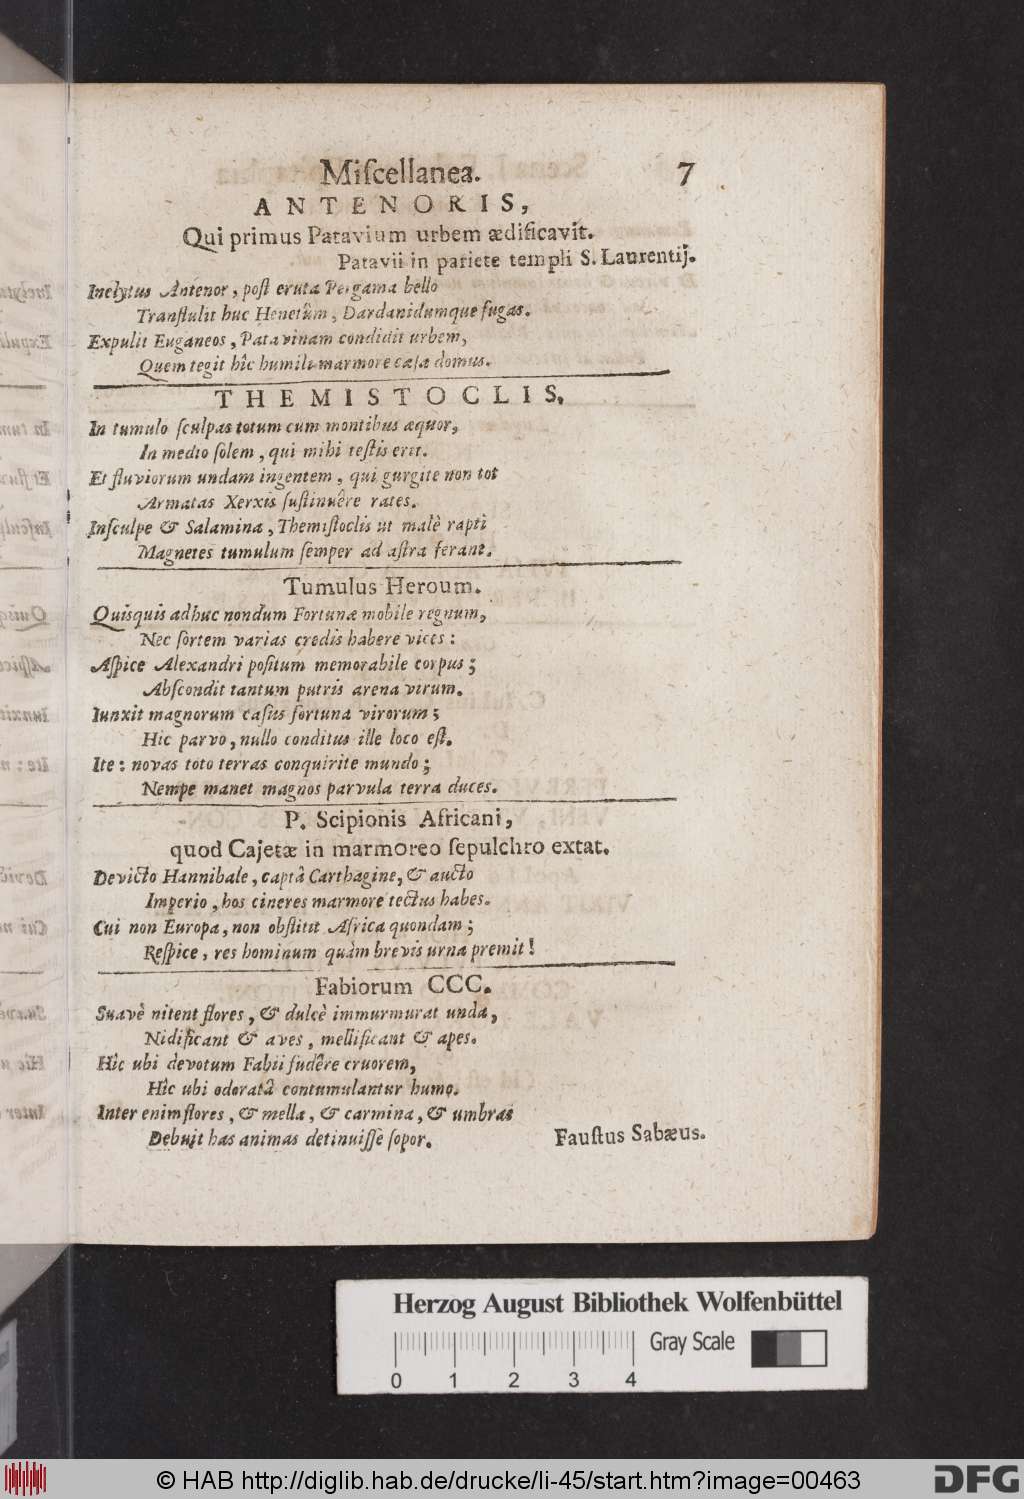 Miſcellanea. 7
ANTENORIS,
Qui primus Patavium urbem ædificavit.
Patavii in pariete templi S. Laurentij.
Inclytus Antenor, poſt eruta Pergama bello
Tranſtulit huc Henetûm, Dardanidumque fugas.
Expulit Euganeos, Patavinam condidit urbem,
Quem tegit hîc humili marmore cæſa domus.
THEMISTOCLIS.
In tumulo ſculpas totum cum montibus æquor,
In medio ſolem, qui mihi teſtis erit.
Et fluviorum undam ingentem, qui gurgite non tot
Armatas Xerxis ſuſtinuêre rates.
Inſculpe & Salamina, Themiſtoclis ut malè rapti
Magnetes tumulum ſemper ad aſtra ferant.
Tumulus Heroum.
Quisquis adhuc nondum Fortunæ mobile regnum,
Nec ſortem varias credis habere vices:
Aſpice Alexandri poſitum memorabile corpus;
Abſcondit tantum putris arena virum.
Iunxit magnorum caſus fortuna virorum;
Hic parvo, nullo conditus ille loco eſt.
Ite: novas toto terras conquirite mundo;
Nempe manet magnos parvula terra duces.
P. Scipionis Africani,
quod Cajetæ in marmoreo ſepulchro extat.
Devicto Hannibale, captâ Carthagine, & aucto
Imperio, hos cineres marmore tectus habes.
Cui non Europa, non obſtitit Africa quondam;
Reſpice, res hominum quàm brevis urna premit!
Fabiorum CCC.
Suavè nitent flores, & dulcè immurmurat unda,
Nidificant & aves, mellificant & apes.
Hîc ubi devotum Fabii fudêre cruorem,
Hîc ubi odoratâ contumulantur humo.
Inter enim flores, & mella, & carmina, & umbras
Debuit has animas detinuiſſe ſopor.
Fauſtus Sabæus.
Herzog August Bibliothek Wolfenbüttel
Gray Scale
0 1 2 3 4
© HAB http://diglib.hab.de/drucke/li-45/start.htm?image=00463
DFG